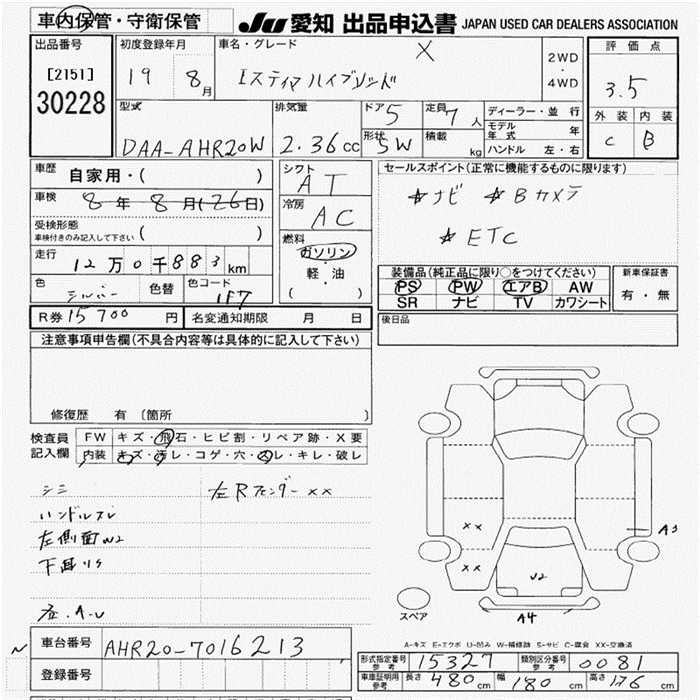 車内保管・守衛保管
JU 愛知 出品申込書 JAPAN USED CAR DEALERS ASSOCIATION
出品番号
[2151]
30228
初度登録年月
19 8月
車名・グレード
エスティマハイブリッド X
2WD
・
4WD
評価点
3.5
外装 内装
C B
型式
DAA-AHR20W
排気量
2.36cc
ドア 5
形状 SW
定員 7人
積載 kg
ディーラー・並行
モデル年式 年
ハンドル 左・右
車歴
自家用・( )
車検
8年8月(26日)
受検形態
車検付きのみ記入して下さい ( )
走行
12万0千883km
色
シルバー
色替
色コード
1F7
シフト
AT
冷房
AC
燃料
ガソリン
軽・油
( )
セールスポイント(正常に機能するものに限ります)
☆ナビ ☆Bカメラ
☆ETC
装備品(純正品に限り○をつけてください)
PS PW エアB AW
SR ナビ TV カワシート
新車保証書
有・無
後日品
R券 15700円
名変通知期限 月 日
注意事項申告欄(不具合内容等は具体的に記入して下さい)
修復歴 有 (箇所 )
検査員記入欄
FW キズ・飛石・ヒビ割・リペア跡・X要
内装 キズ・汚レ・コゲ・穴・スレ・キレ・破レ
シミ
ハンドルスレ
左側面W2
下廻りS
左右フェンダーXX
XX
XX
U2
A3
A4
スペア
A-キズ E-エクボ U-凹み W-補修跡 S-サビ C-腐食 XX-交換済
車台番号
AHR20-7016213
登録番号
形式指定番号 参考
15327
類別区分番号 参考
0081
車庫証明用 参考
長さ 480cm 幅 180cm 高さ 176cm